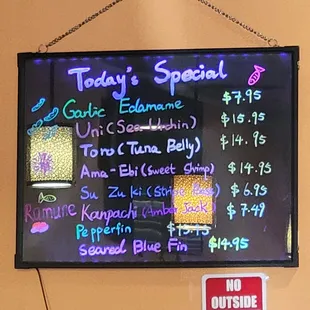 Today's Special
Garlic Edamame $7.95
Uni (Sea Urchin) $15.95
Toro (Tuna Belly) $14.95
Ama-Ebi (Sweet Shrimp) $14.95
Su Zu ki (Stripe Bass) $6.95
Ramune
Kanpachi (Amber Jack) $7.49
Pepperfin $13.95
Seared Blue Fin $14.95
NO
OUTSIDE